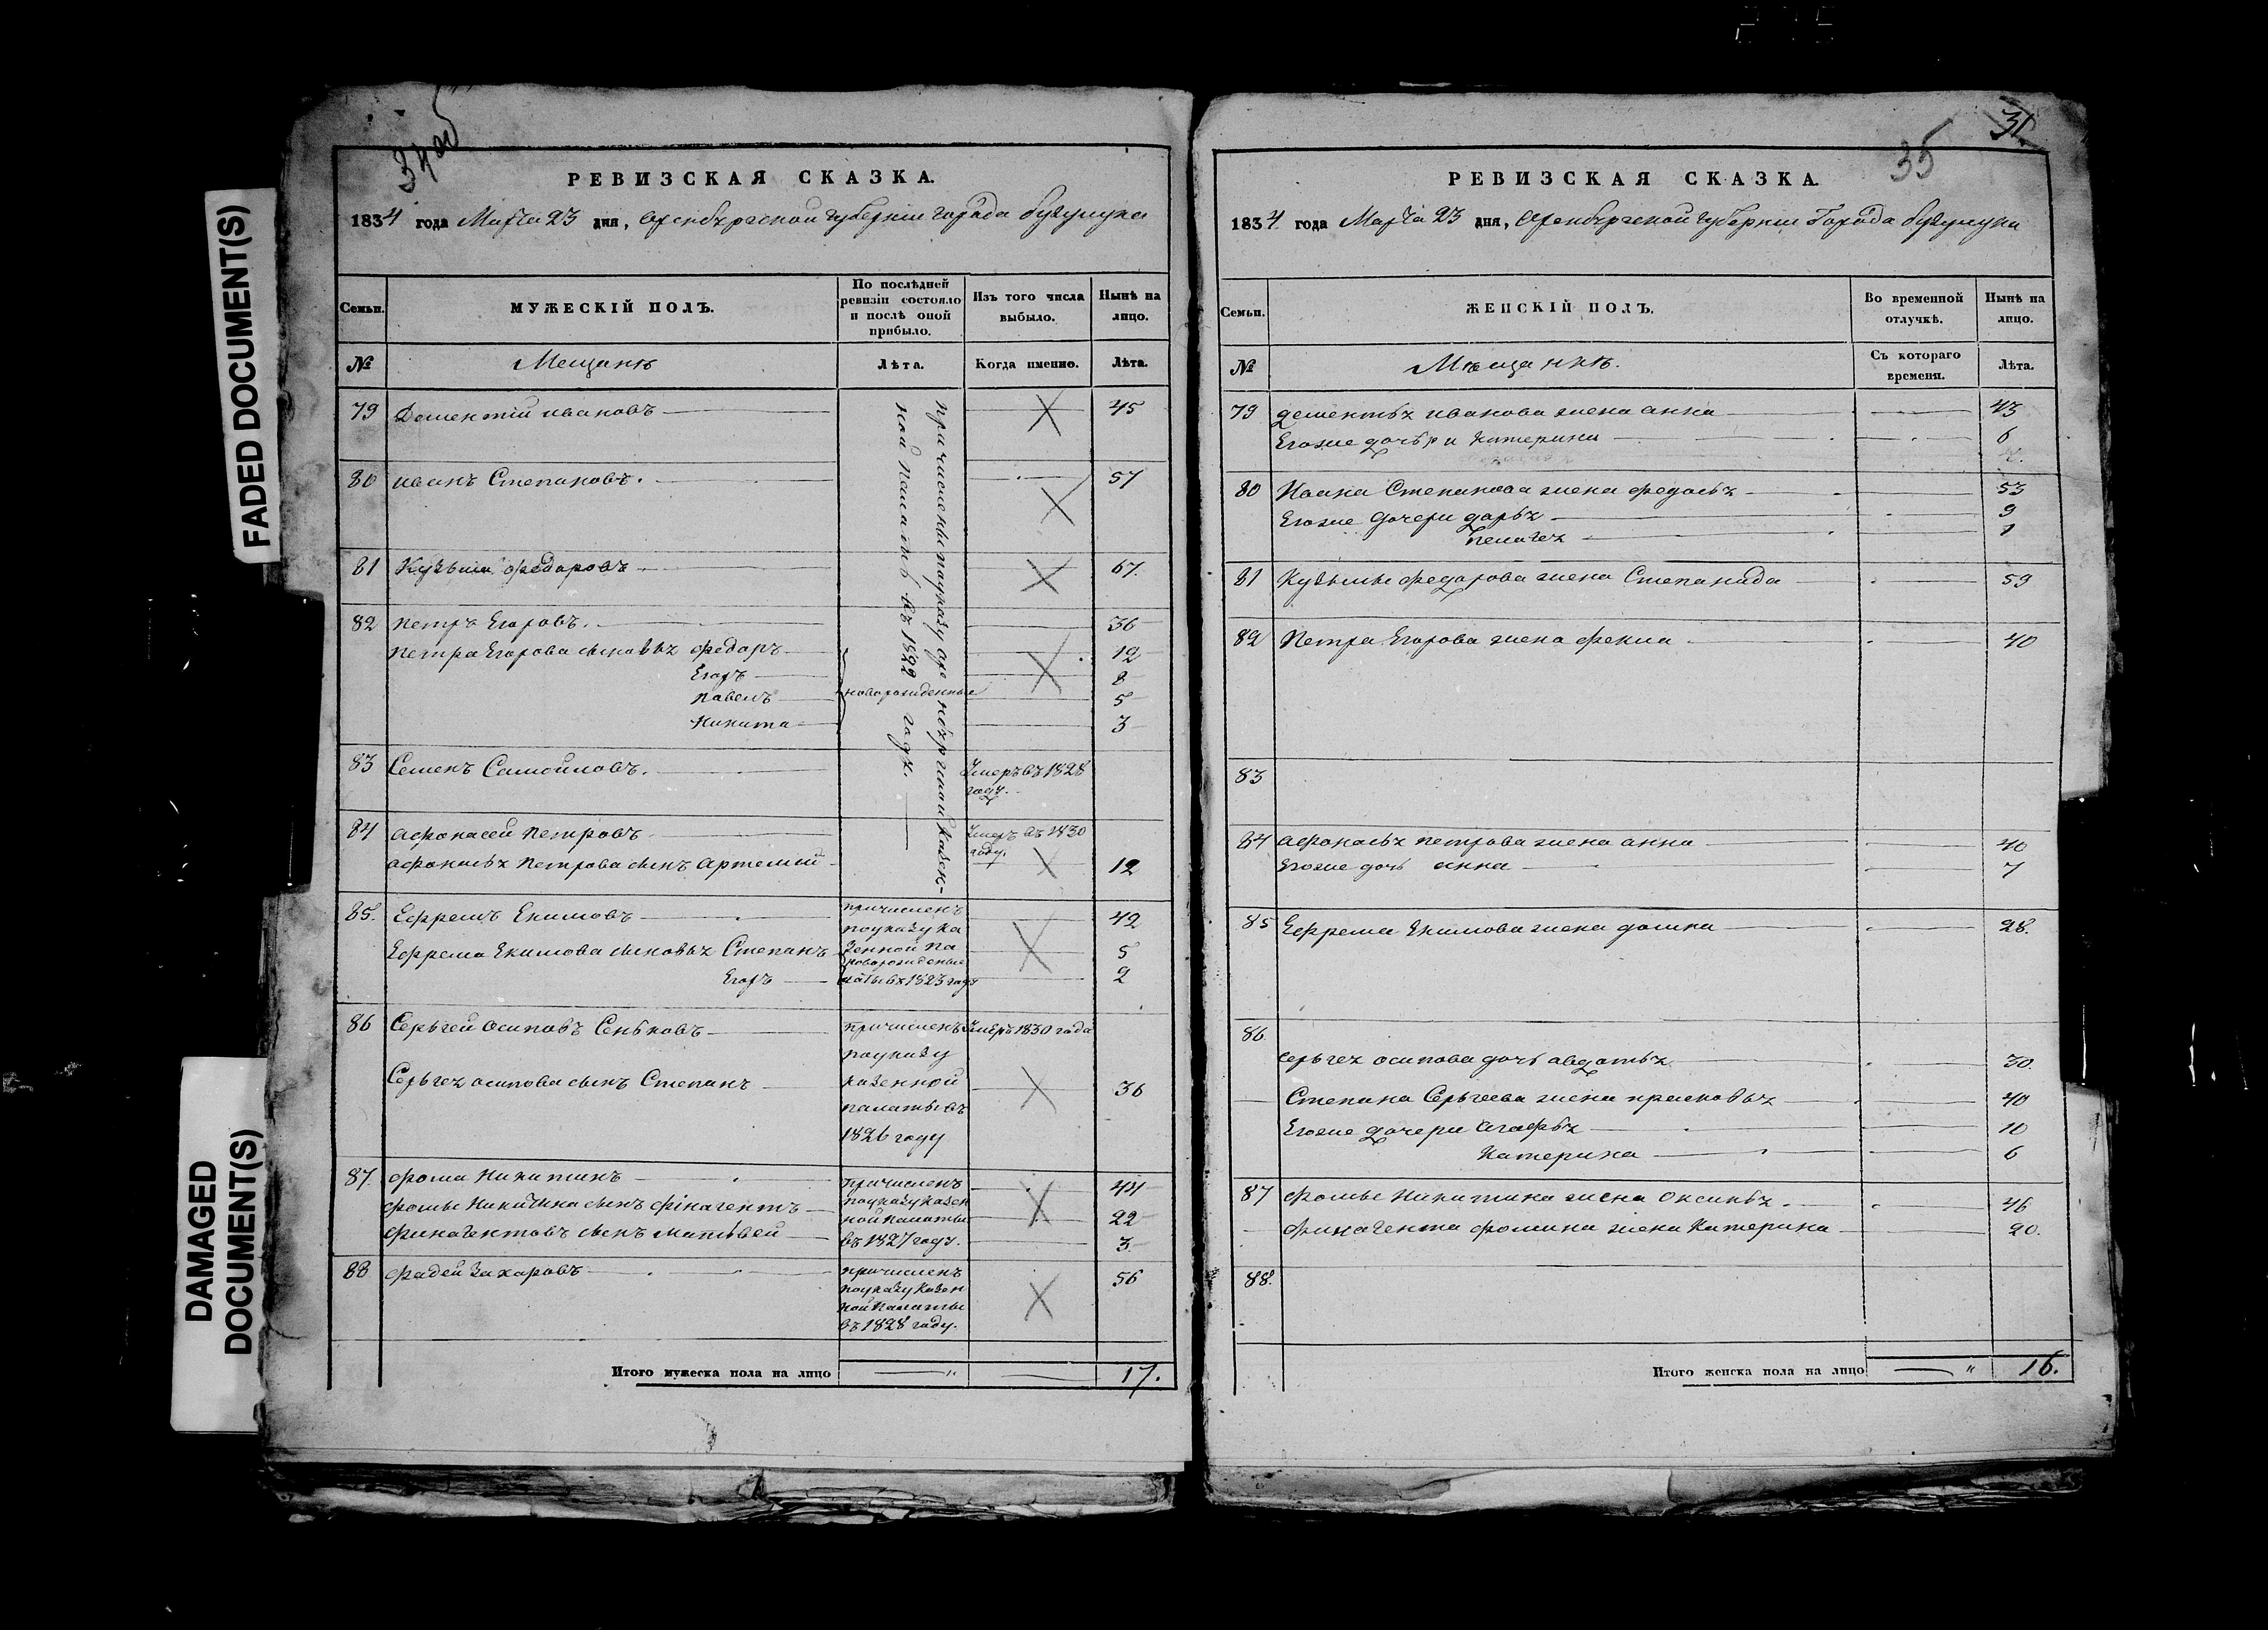 FADED DOCUMENT(S)
DAMAGED
DOCUMENT(S)
34 об
РЕВИЗСКАЯ СКАЗКА.
1834 года Марта 23 дня, Оренбургской губернии города бугульмы
Семьи.
МУЖЕСКІЙ ПОЛЪ.
По послѣдней
ревизіи состояло
и послѣ оной
прибыло.
Изъ того числа
выбыло.
Нынѣ на
лицо.
№
Мещане
Лѣта.
Когда именно.
Лѣта.
причислены по указу оренбургской казен-
ной палаты въ 1822 году.
79 Дементий ивановъ 45
80 иванъ Степановъ. 57
81 Кузьма федоровъ 67.
82 петръ Егоровъ. 36
петра Егорова сыновья федоръ 12
Егоръ 8
павелъ новорожденные 5
Никита 3
83 Семенъ Самойловъ. Умеръ въ 1828
году.
84 афонасей петровъ Умеръ въ 1830
году.
афонасья петрова сынъ артемий 12
85. Ефремъ Екимовъ причисленъ 42
по указу ка
Ефрема Екимова сыновья Степанъ зенной па 5
новорожденые
Егоръ латы въ 1823 году 2
86 Серьгей осиповъ Сеньковъ причисленъ Умеръ 1830 года
по указу
Серьгея осипова сынъ Степанъ казенной 36
палаты въ
1826 году
87. фома Никитинъ причисленъ 44
фомы Никитина сынъ финагентъ по указу казен 22
ной палаты
финагентовъ сынъ матьвей въ 1827 году. 3
88 фадей Захаровъ причисленъ 56
по указу казен
ной палаты
въ 1828 году.
Итого мужеска пола на лицо 17.
31
35
РЕВИЗСКАЯ СКАЗКА.
1834 года Марта 23 дня, Оренбургской губернии Города бугульмы
Семьи.
ЖЕНСКІЙ ПОЛЪ.
Во временной
отлучкѣ.
Нынѣ на
лицо.
№
Мещанки.
Съ котораго
времени.
Лѣта.
79 дементья иванова жена анна 43
Егоже дочьри Катерина 6
80 Ивана Степанова жена федосья 53
Егоже дочери дарья 9
пелагея 1
81 Кузьмы федорова жена Степанида 59
82 Петра Егорова жена фекла 40
83
84 афонасья петрова жена анна 40
Егоже дочь анна 7
85 Ефрема Екимова жена домна 28.
86
серьгея осипова дочь авдотья 30.
Степана Серьгеева жена прасковья 40
Егоже дочери агафья 10
Катерина 6
87 фомы Никитина жена оксинья. 46
финагента фомина жена Катерина 20.
88.
Итого женска пола на лицо " 16.